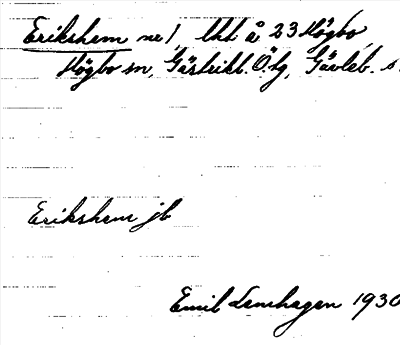 Erikshem nr 1, lht å 23 Högbo,
Högbo sn, Gästrikl. Ö. tg, Gävleb.
Erikshem jb
Emil Lennhagen 1930